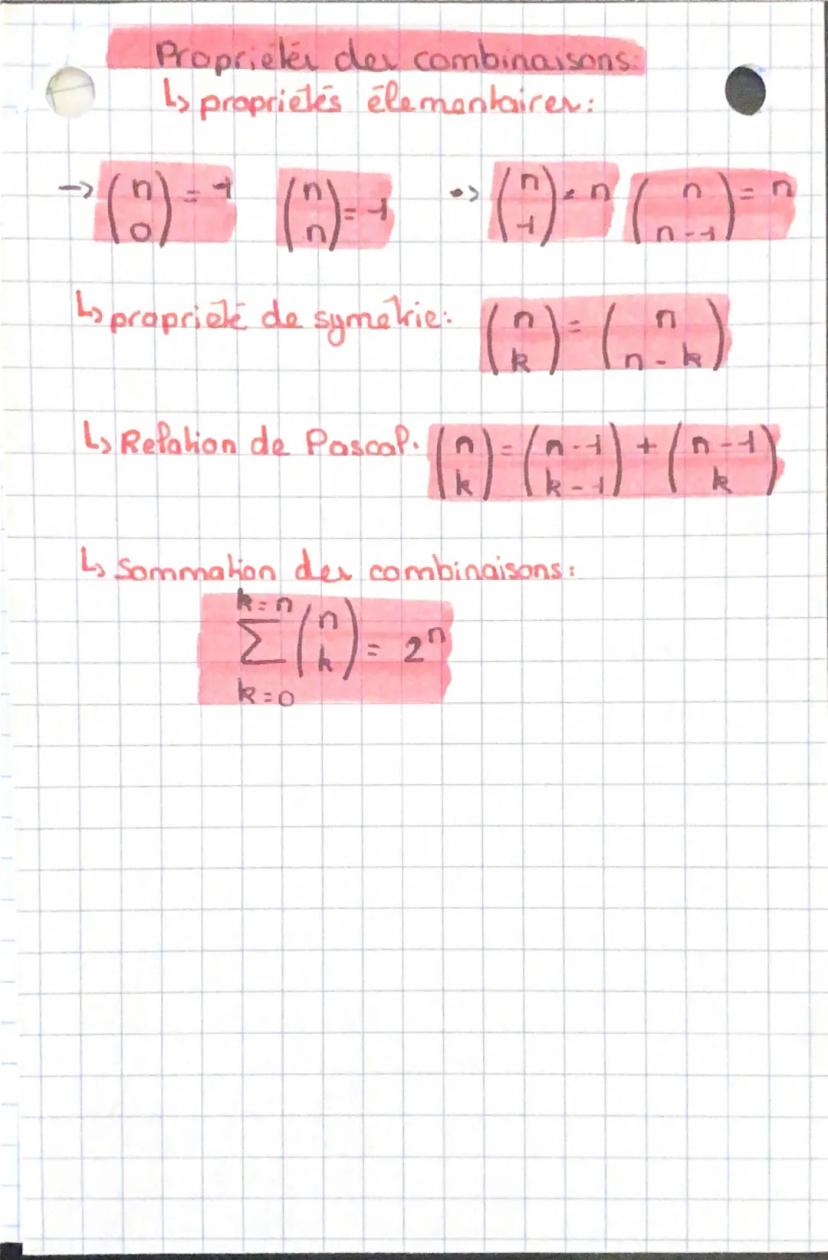 Propriétés des combinaisons:
↳ propriétés élementaires:
→ (n 0) = 1 (n n) = 1 •> (n 1) = n (n n-1) = n
↳ propriété de symétrie: (n k) = (n n-k)
↳ Relation de Pascal. (n k) = (n-1 k-1) + (n-1 k)
↳ Sommation des combinaisons:
k=n
∑ (n k) = 2ⁿ
k=0